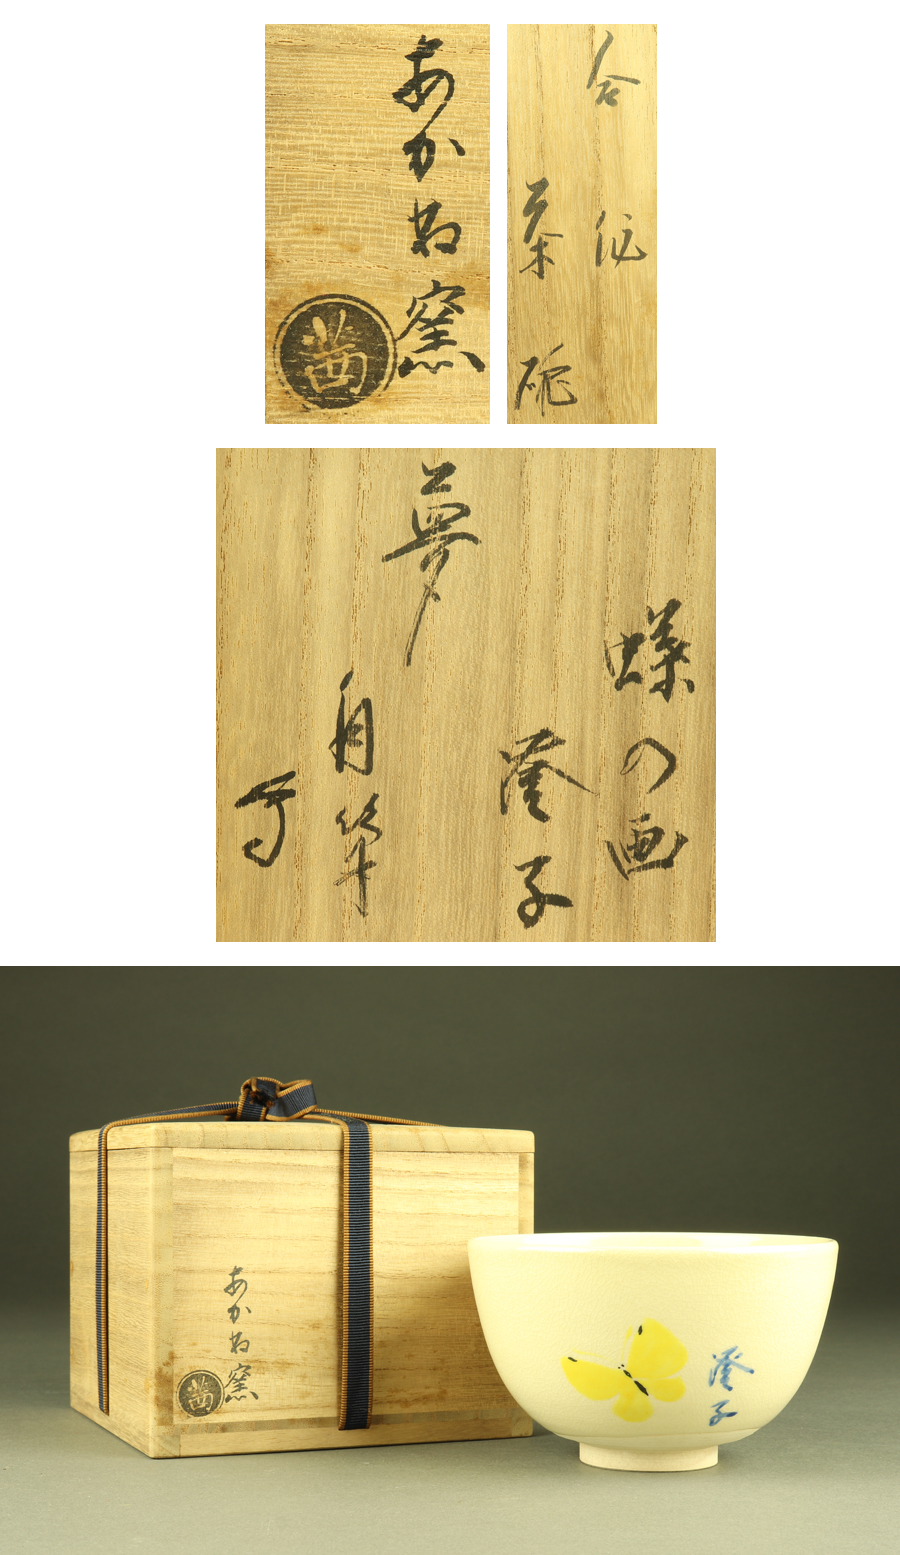 あかね窯
茜
合作
茶碗
蝶の画
登子
夢
自筆
あかね窯
茜
登子